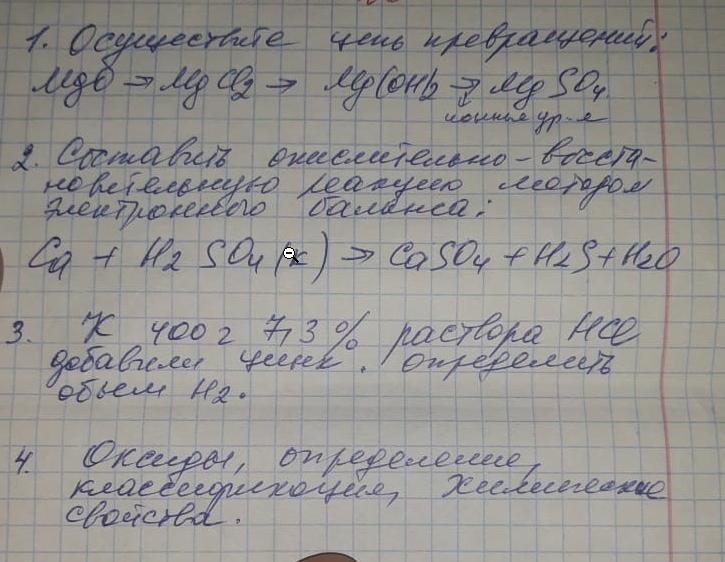 1. Осуществите цепь превращений:
MgO → MgCl2 → Mg(OH)2 → MgSO4
ионные ур-я
2. Составить окислительно-восста-
новительную реакцию методом
электронного баланса:
Ca + H2SO4(к) → CaSO4 + H2S + H2O
3. К 400 г 7,3% раствора HCl
добавили цинк. определить
объем H2.
4. Оксиды, определение,
классификация, химические
свойства.